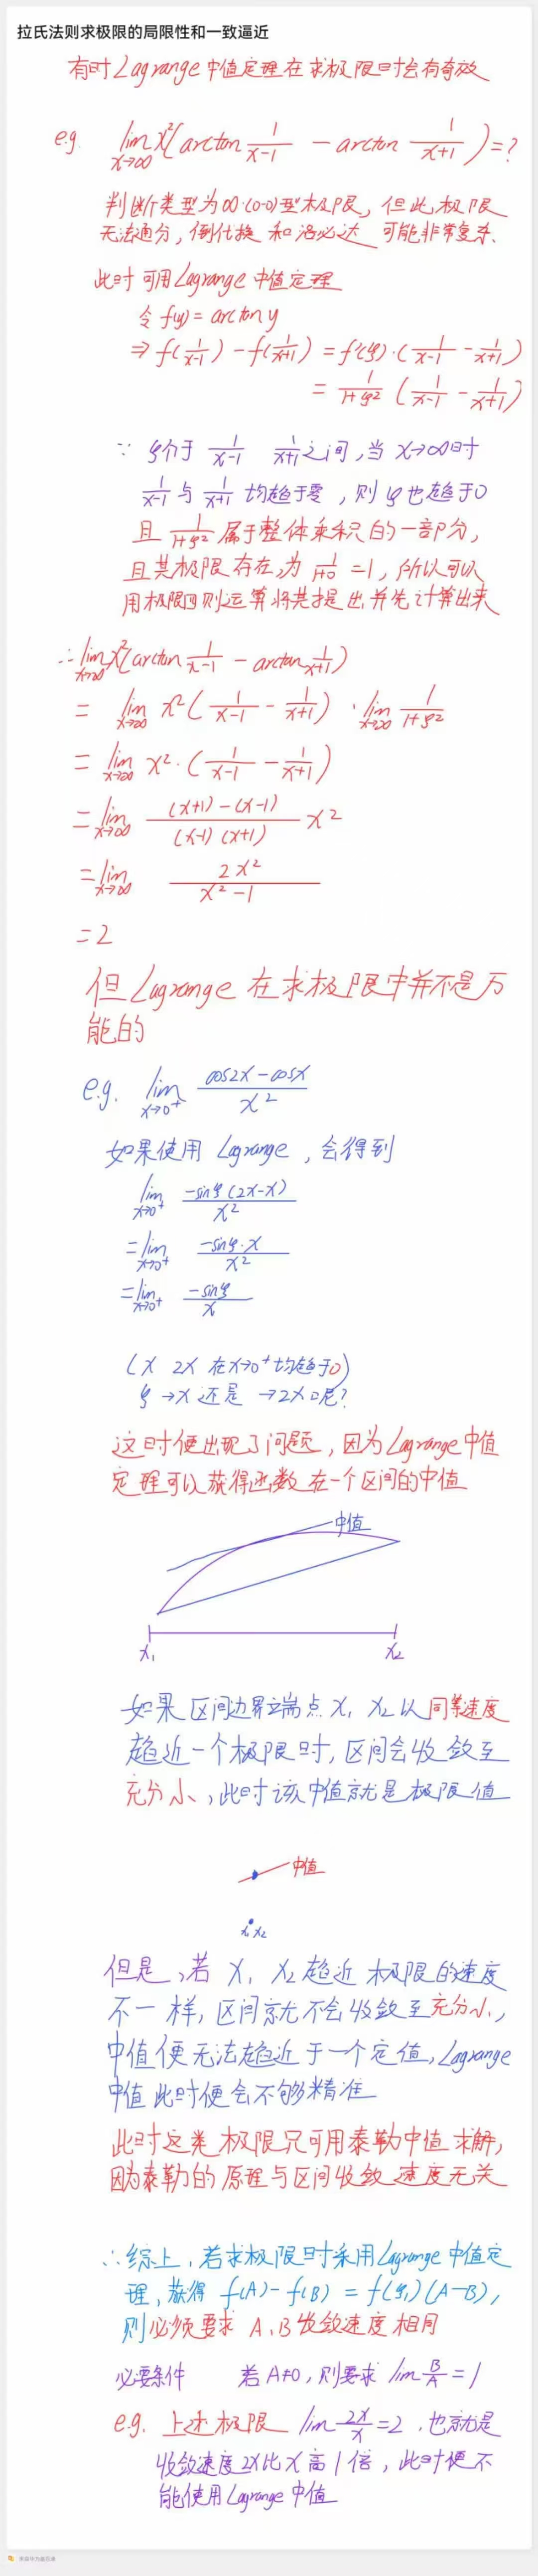 拉氏法则求极限的局限性和一致逼近
有时Lagrange中值定理在求极限时会有奇效
e.g. lim x→∞ x²(arctan 1/(x-1) - arctan 1/(x+1)) = ?
判断类型为∞·(0-0)型极限, 但此极限
无法通分, 倒代换 和 洛必达 可能非常复杂.
此时可用Lagrange中值定理
令 f(y) = arctan y
⇒ f(1/(x-1)) - f(1/(x+1)) = f'(ξ)·(1/(x-1) - 1/(x+1))
= 1/(1+ξ²) (1/(x-1) - 1/(x+1))
∵ ξ介于 1/(x-1) 1/(x+1)之间, 当 x→∞时
1/(x-1) 与 1/(x+1) 均趋于零, 则 ξ 也趋于0
且 1/(1+ξ²) 属于整体乘积的一部分,
且其极限存在,为 1/(1+0) = 1, 所以可以
用极限四则运算将其提出并先计算出来
∴ lim x→∞ x²(arctan 1/(x-1) - arctan 1/(x+1))
= lim x→∞ x²(1/(x-1) - 1/(x+1)) · lim x→∞ 1/(1+ξ²)
= lim x→∞ x²·(1/(x-1) - 1/(x+1))
= lim x→∞ ((x+1)-(x-1))/((x-1)(x+1)) x²
= lim x→∞ 2x²/(x²-1)
= 2
但Lagrange在求极限中并不是万
能的
e.g. lim x→0⁺ (cos2x-cosx)/x²
如果使用 Lagrange, 会得到
lim x→0⁺ -sinξ(2x-x)/x²
= lim x→0⁺ -sinξ·x/x²
= lim x→0⁺ -sinξ/x
(x 2x 在x→0⁺均趋于0)
ξ →x 还是 →2x呢?
这时便出现了问题, 因为Lagrange中值
定理可以获得函数在一个区间的中值
中值
x₁ x₂
如果区间边界端点 x₁ x₂ 以同等速度
趋近一个极限时, 区间会收敛至
充分小, 此时该中值就是极限值
中值
x₁ x₂
但是, 若 x₁ x₂ 趋近极限的速度
不一样, 区间就不会收敛至充分小,
中值便无法趋近于一个定值, Lagrange
中值此时便会不够精准
此时这类极限只可用泰勒中值求解,
因为泰勒的原理与区间收敛速度无关
∴ 综上, 若求极限时采用Lagrange中值定
理, 获得 f(A)-f(B) = f(ξ)(A-B),
则必须要求 A、B收敛速度相同
必要条件 若A≠0, 则要求 lim B/A = 1
e.g. 上述极限 lim 2x/x = 2, 也就是
收敛速度2x比x高1倍, 此时便不
能使用Lagrange中值